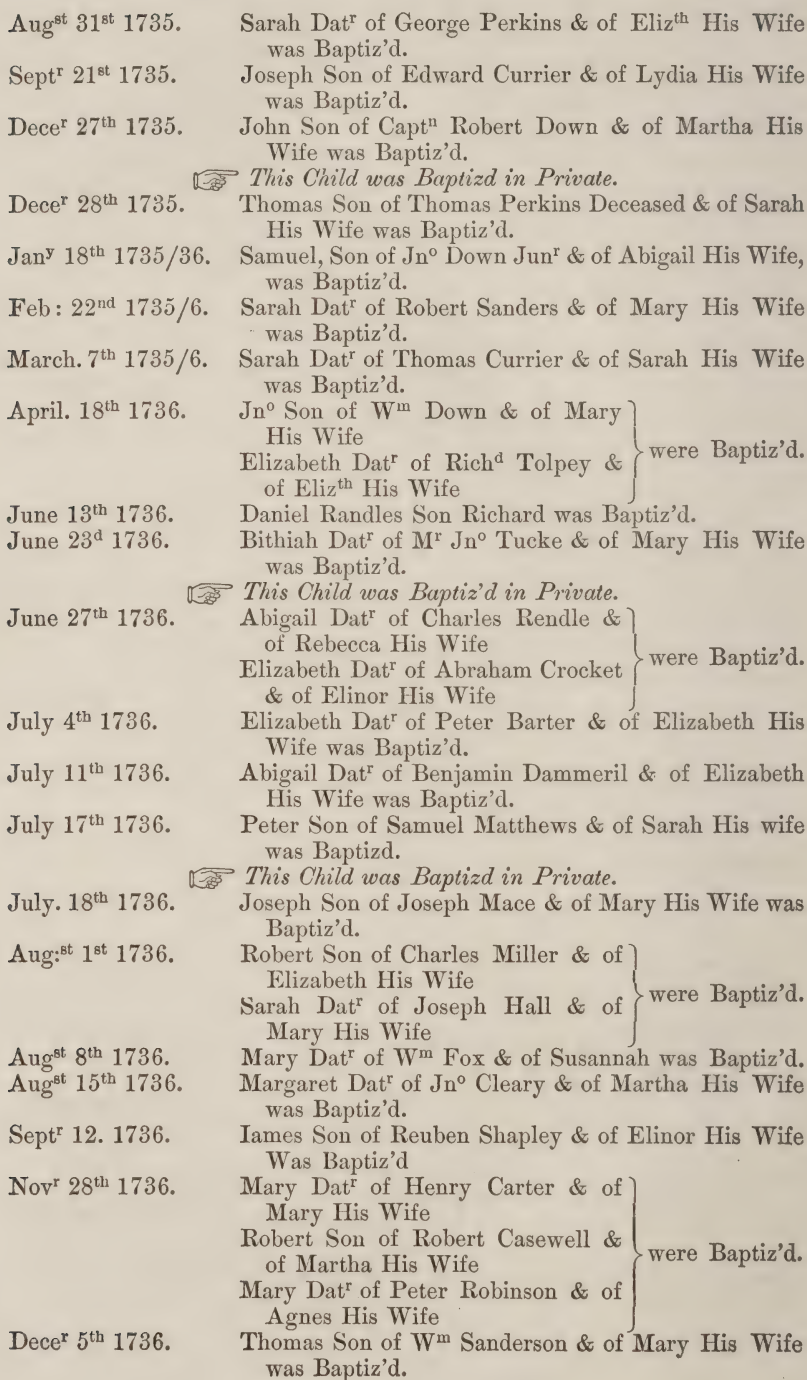 Augst 31st 1735. Sarah Datr of George Perkins & of Elizth His Wife
was Baptiz'd.
Septr 21st 1735. Joseph Son of Edward Currier & of Lydia His Wife
was Baptiz'd.
Decer 27th 1735. John Son of Captn Robert Down & of Martha His
Wife was Baptiz'd.
☞ This Child was Baptizd in Private.
Decer 28th 1735. Thomas Son of Thomas Perkins Deceased & of Sarah
His Wife was Baptiz'd.
Jany 18th 1735/36. Samuel, Son of Jno Down Junr & of Abigail His Wife,
was Baptiz'd.
Feb: 22nd 1735/6. Sarah Datr of Robert Sanders & of Mary His Wife
was Baptiz'd.
March. 7th 1735/6. Sarah Datr of Thomas Currier & of Sarah His Wife
was Baptiz'd.
April. 18th 1736. Jno Son of Wm Down & of Mary
His Wife
Elizabeth Datr of Richd Tolpey &
of Elizth His Wife
were Baptiz'd.
June 13th 1736. Daniel Randles Son Richard was Baptiz'd.
June 23d 1736. Bithiah Datr of Mr Jno Tucke & of Mary His Wife
was Baptiz'd.
☞ This Child was Baptiz'd in Private.
June 27th 1736. Abigail Datr of Charles Rendle &
of Rebecca His Wife
Elizabeth Datr of Abraham Crocket
& of Elinor His Wife
were Baptiz'd.
July 4th 1736. Elizabeth Datr of Peter Barter & of Elizabeth His
Wife was Baptiz'd.
July 11th 1736. Abigail Datr of Benjamin Dammeril & of Elizabeth
His Wife was Baptiz'd.
July 17th 1736. Peter Son of Samuel Matthews & of Sarah His wife
was Baptizd.
☞ This Child was Baptizd in Private.
July. 18th 1736. Joseph Son of Joseph Mace & of Mary His Wife was
Baptiz'd.
Aug:st 1st 1736. Robert Son of Charles Miller & of
Elizabeth His Wife
Sarah Datr of Joseph Hall & of
Mary His Wife
were Baptiz'd.
Augst 8th 1736. Mary Datr of Wm Fox & of Susannah was Baptiz'd.
Augst 15th 1736. Margaret Datr of Jno Cleary & of Martha His Wife
was Baptiz'd.
Septr 12. 1736. Iames Son of Reuben Shapley & of Elinor His Wife
Was Baptiz'd
Novr 28th 1736. Mary Datr of Henry Carter & of
Mary His Wife
Robert Son of Robert Casewell &
of Martha His Wife
Mary Datr of Peter Robinson & of
Agnes His Wife
were Baptiz'd.
Decer 5th 1736. Thomas Son of Wm Sanderson & of Mary His Wife
was Baptiz'd.